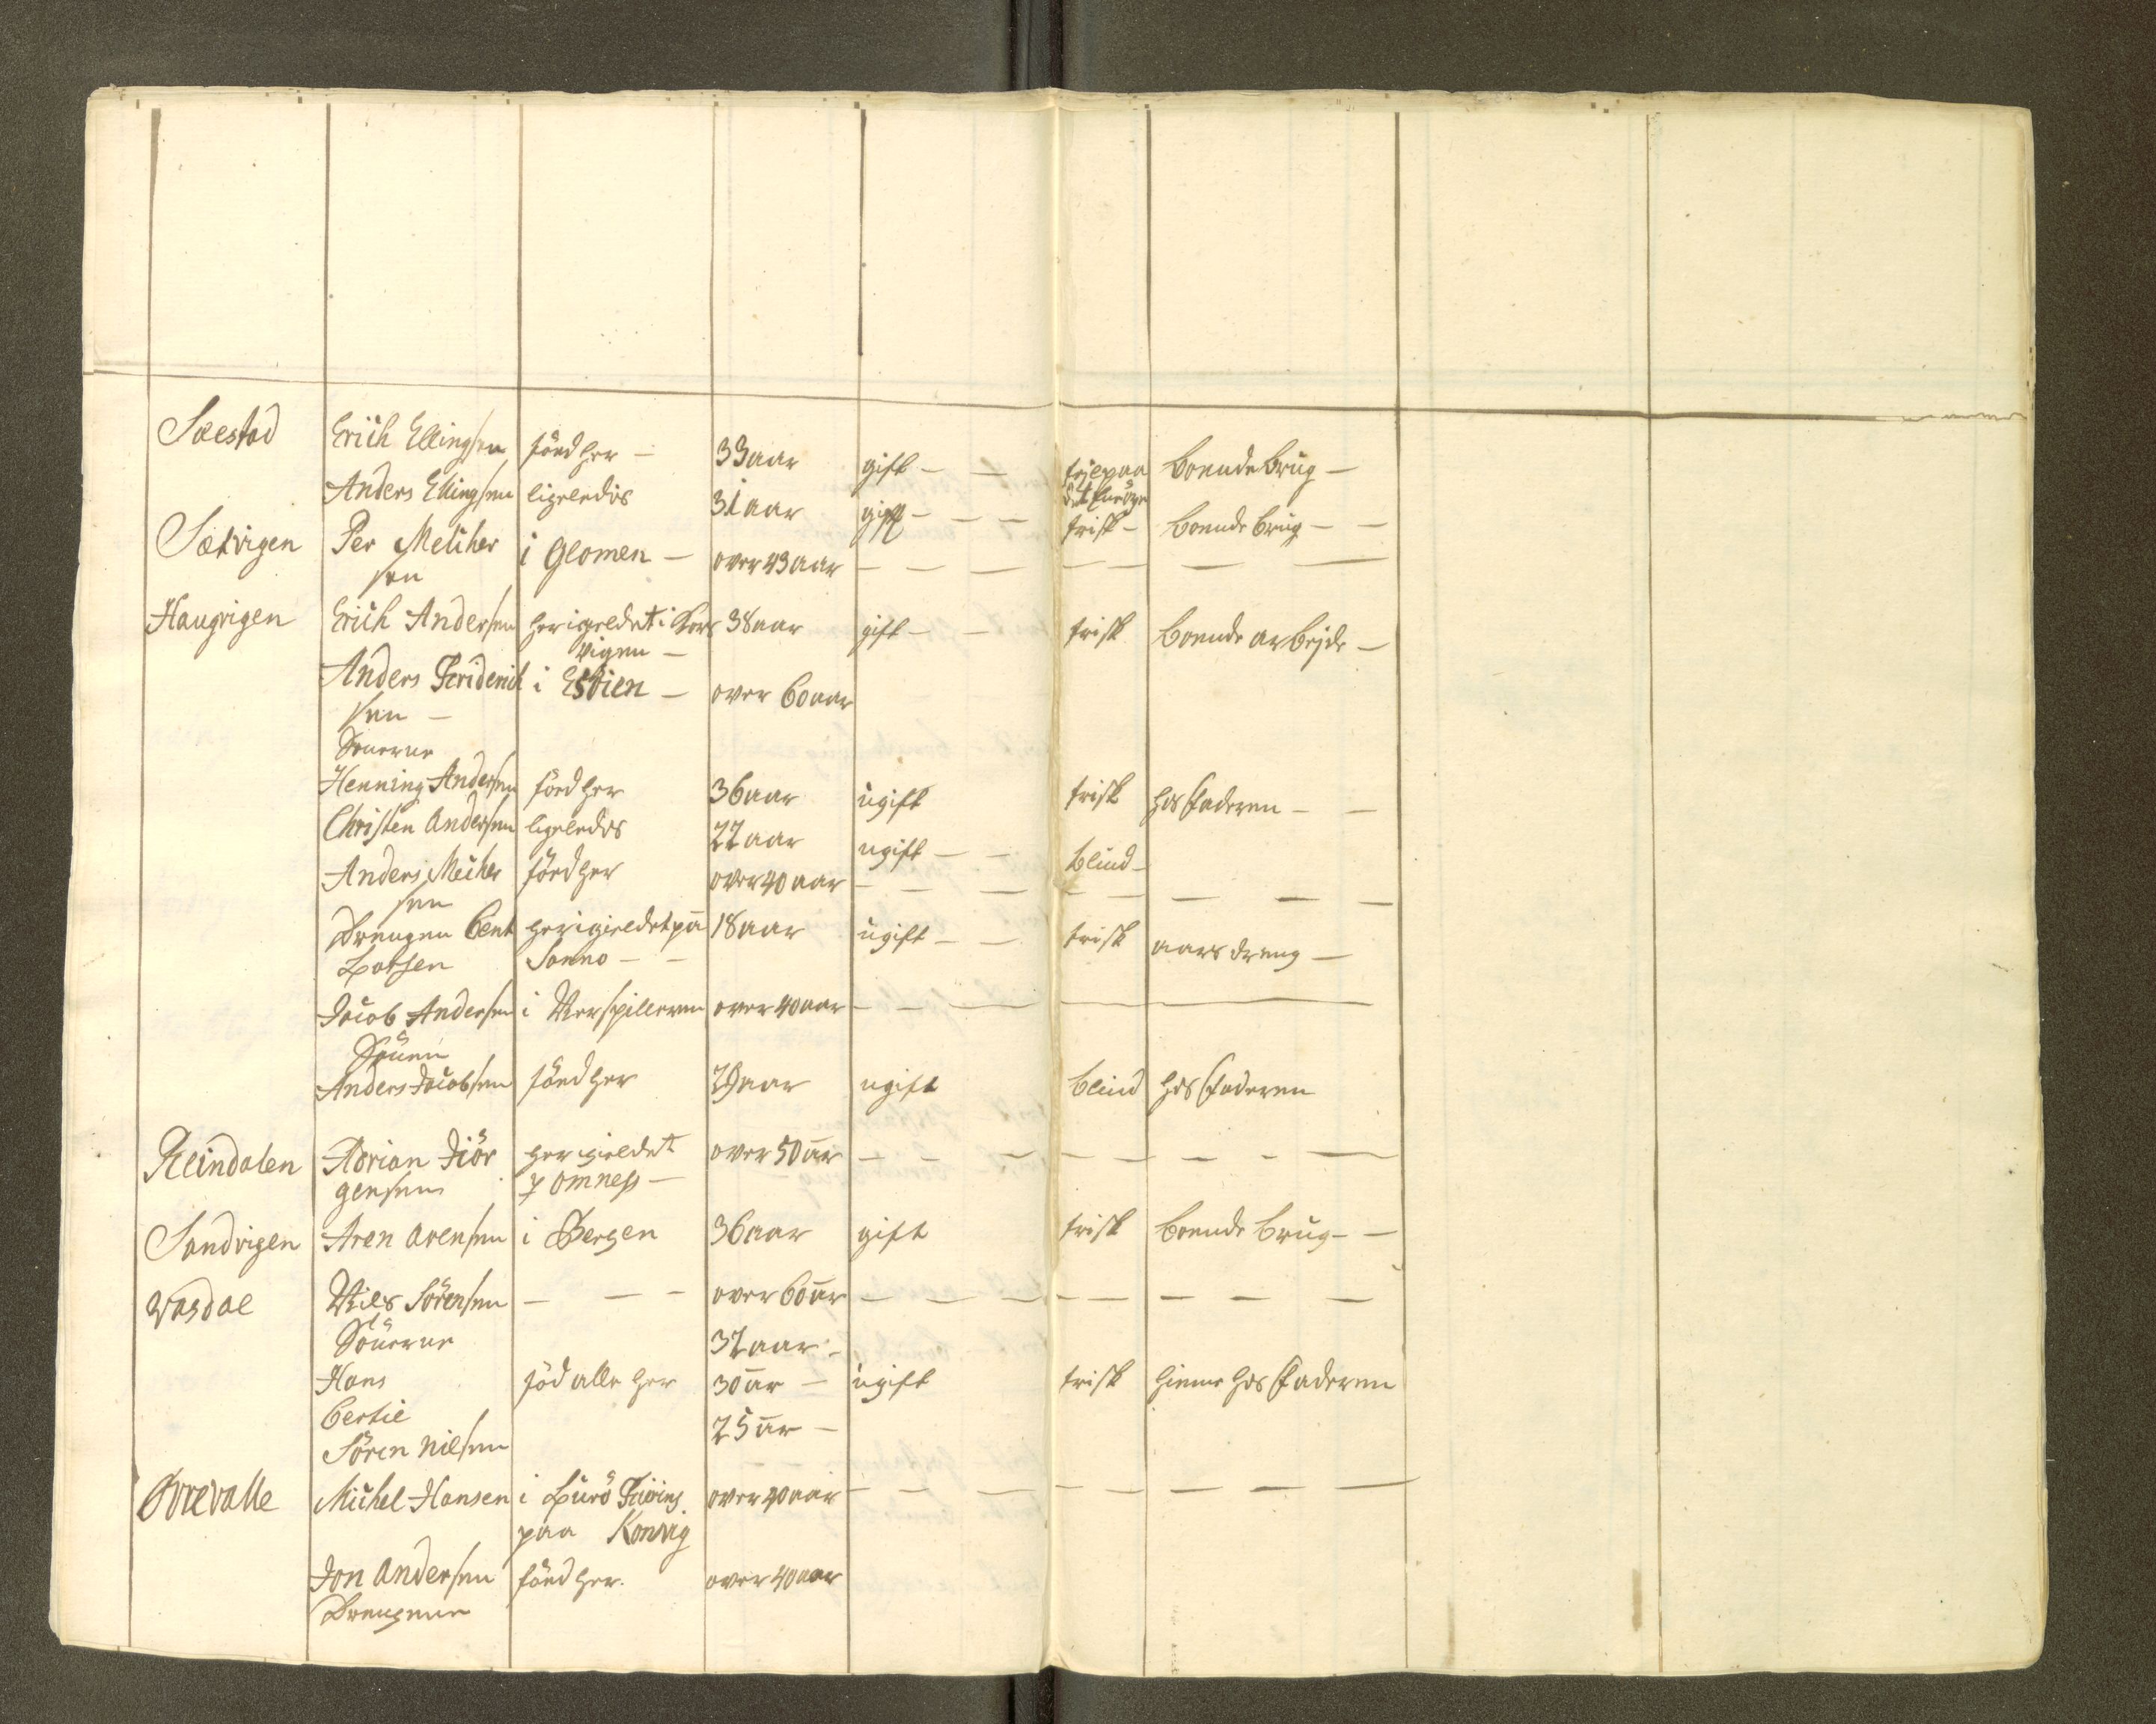 Sæstad Erich Ellingsen föed her - 33 aar gift - - boende brug -
Anders Ellingsen ligeledes 31 aar gift - - - frisk - boende brug - -
Sætvigen Per Melcher
sen i Glomen - over 43 aar - - - - - - -
Haugvigen Erich Andersen her i gieldet i Kors
vigen - 38 aar gift - - frisk boende arbejde -
Anders Friderich
sen - i Esvien - over 60 aar
Sønerne
Henning Andersen föed her 36 aar ugift frisk hos faderen - -
Christen Andersen ligeledes 22 aar ugift - - blind -
Anders Melcher
sen föed her over 40 aar - - - - - - -
Drengen Bent
Larsen her i gieldet på
Sanno - - 18 aar ugift - - frisk aars dreng -
Jacob Andersen i Verspilleren over 40 aar - - -
Sönen
Anders Jacobsen föed her 29 aar ugift blind hos faderen
Reindalen Adrian Jör
gensen her i gieldet
p omness - over 50 aar - - - - - - - -
Sandvigen Aren Arensen i Bergen 36 aar gift frisk boende brug - -
Vasdal Niels Sörensen - - - over 60 ar - - - - - - - -
Sönerne 32 aar -
Hans föd alle her 30 ar - ugift frisk hieme hos faderen
Bertil 25 ar -
Sören Nilsen
Övrevalle Michel Hansen i Lurö
paa Konsvig over 40 aar - - - - - - - -
Jon Andersen föed her. over 40 aar
Drengene